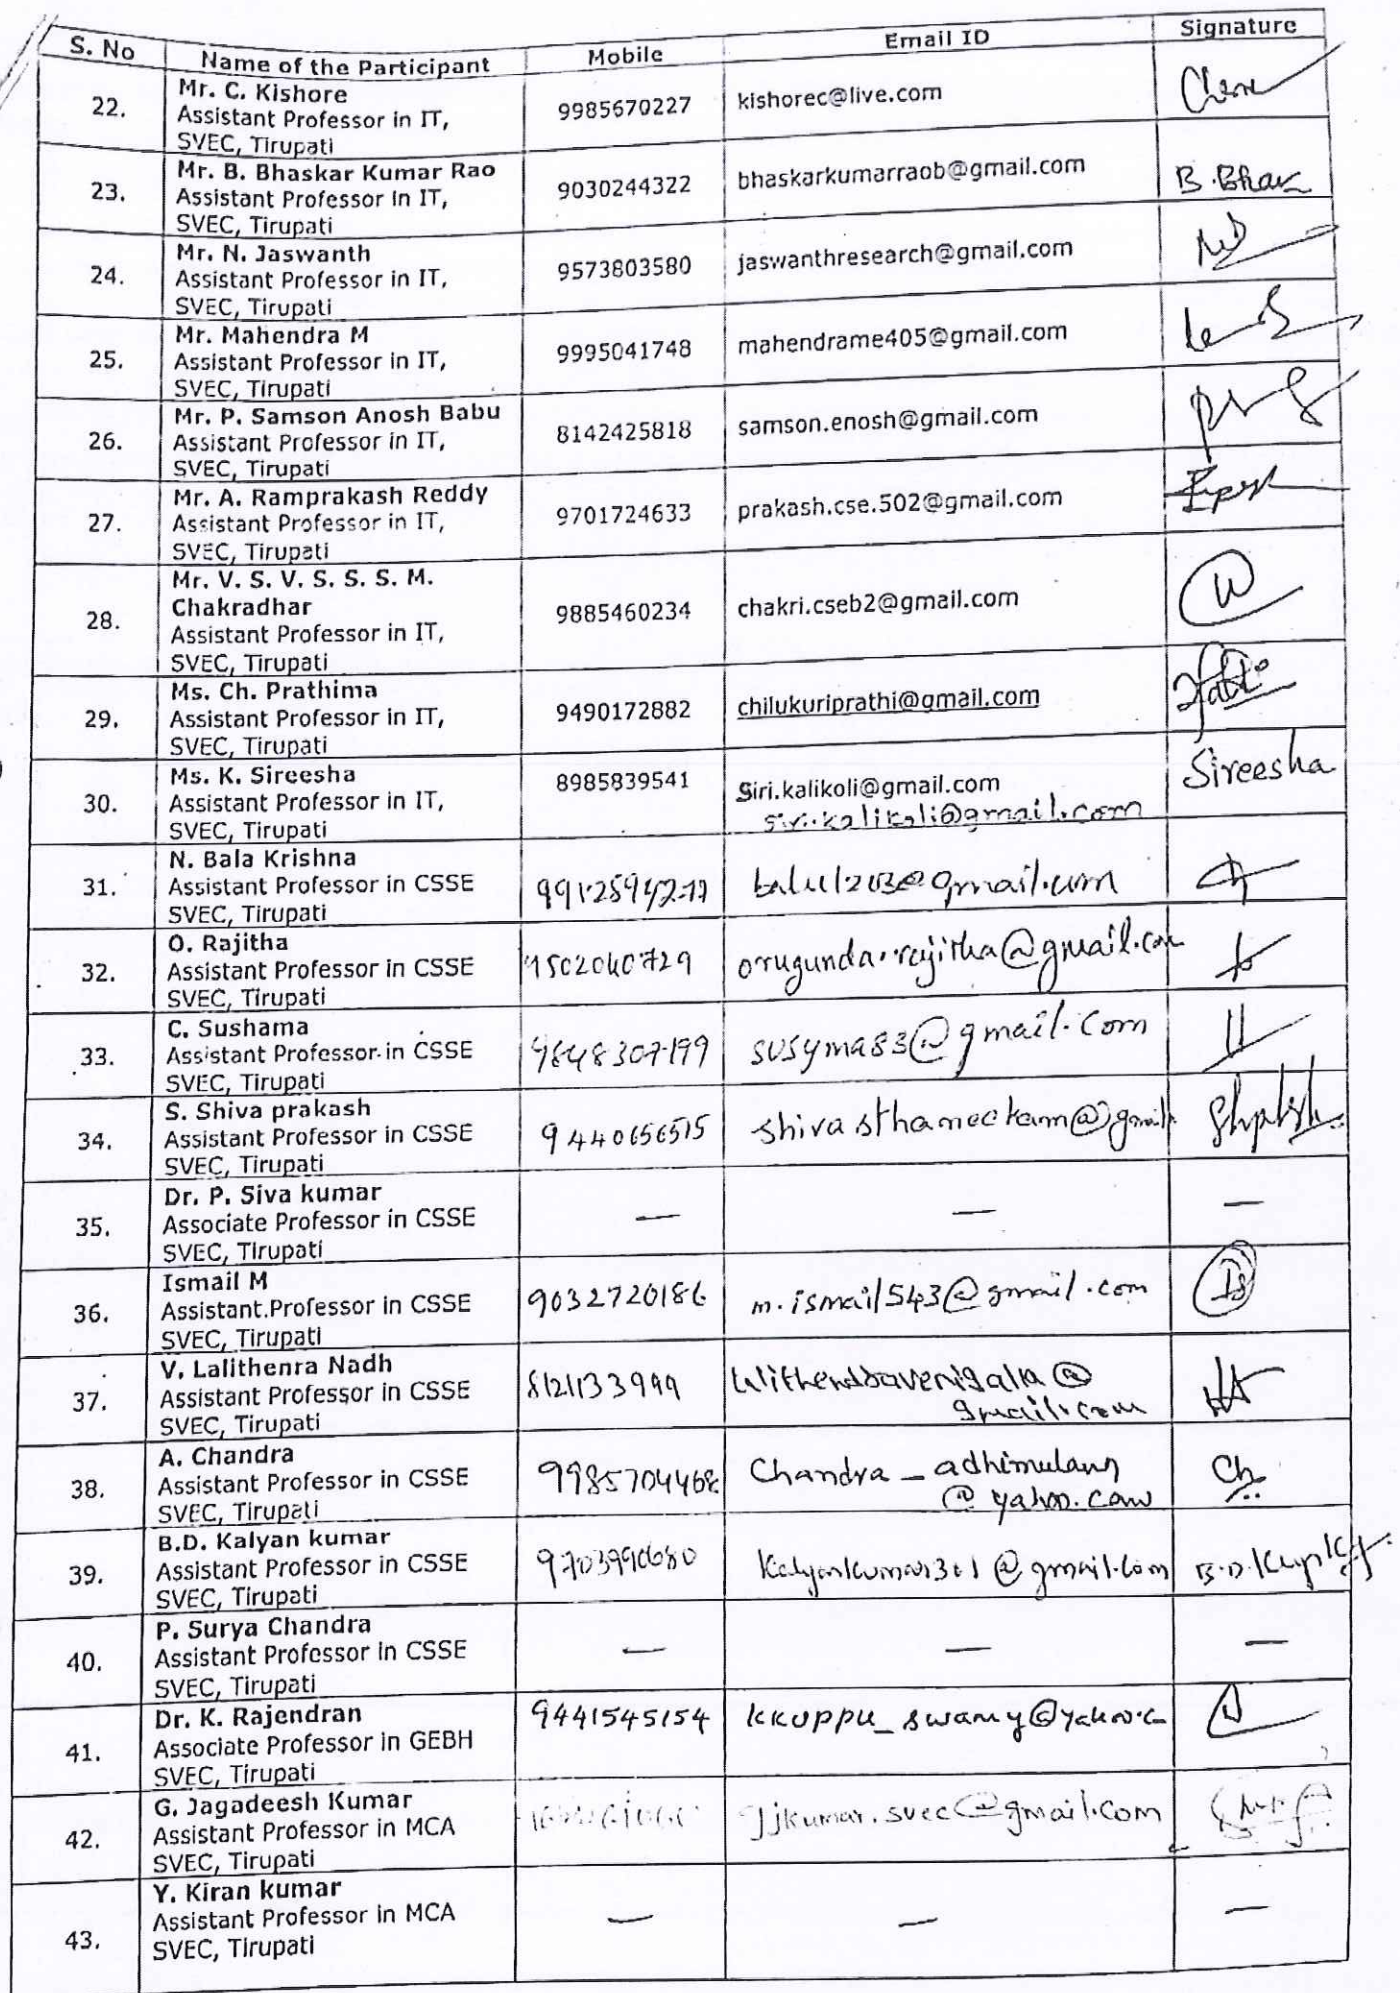 S. No Name of the Participant Mobile Email ID Signature
22. Mr. C. Kishore
Assistant Professor in IT,
SVEC, Tirupati
9985670227 kishorec@live.com
23. Mr. B. Bhaskar Kumar Rao
Assistant Professor in IT,
SVEC, Tirupati
9030244322 bhaskarkumarraob@gmail.com
24. Mr. N. Jaswanth
Assistant Professor in IT,
SVEC, Tirupati
9573803580 jaswanthresearch@gmail.com
25. Mr. Mahendra M
Assistant Professor in IT,
SVEC, Tirupati
9995041748 mahendrame405@gmail.com
26. Mr. P. Samson Anosh Babu
Assistant Professor in IT,
SVEC, Tirupati
8142425818 samson.enosh@gmail.com
27. Mr. A. Ramprakash Reddy
Assistant Professor in IT,
SVEC, Tirupati
9701724633 prakash.cse.502@gmail.com
28. Mr. V. S. V. S. S. S. M.
Chakradhar
Assistant Professor in IT,
SVEC, Tirupati
9885460234 chakri.cseb2@gmail.com
29. Ms. Ch. Prathima
Assistant Professor in IT,
SVEC, Tirupati
9490172882 chilukuriprathi@gmail.com
30. Ms. K. Sireesha
Assistant Professor in IT,
SVEC, Tirupati
8985839541 Siri.kalikoli@gmail.com
siri.kalikoli@gmail.com
Sireesha
31. N. Bala Krishna
Assistant Professor in CSSE
SVEC, Tirupati
32. O. Rajitha
Assistant Professor in CSSE
SVEC, Tirupati
9502040729 orugunda.rajitha@gmail.com
33. C. Sushama
Assistant Professor in CSSE
SVEC, Tirupati
9848307199 susyma83@gmail.com
34. S. Shiva prakash
Assistant Professor in CSSE
SVEC, Tirupati
9440656515
35. Dr. P. Siva kumar
Associate Professor in CSSE
SVEC, Tirupati
— — —
36. Ismail M
Assistant.Professor in CSSE
SVEC, Tirupati
9032720186 m.ismail543@gmail.com
37. V. Lalithenra Nadh
Assistant Professor in CSSE
SVEC, Tirupati
8121133999
gmail.com
38. A. Chandra
Assistant Professor in CSSE
SVEC, Tirupati
9985704468 Chandra_adhimulam
@yahoo.com
39. B.D. Kalyan kumar
Assistant Professor in CSSE
SVEC, Tirupati
9703990680 Kalyankumar301@gmail.com
40. P. Surya Chandra
Assistant Professor in CSSE
SVEC, Tirupati
— — —
41. Dr. K. Rajendran
Associate Professor in GEBH
SVEC, Tirupati
9441545154
42. G. Jagadeesh Kumar
Assistant Professor in MCA
SVEC, Tirupati
jjkumar.svec@gmail.com
43. Y. Kiran kumar
Assistant Professor in MCA
SVEC, Tirupati
— — —